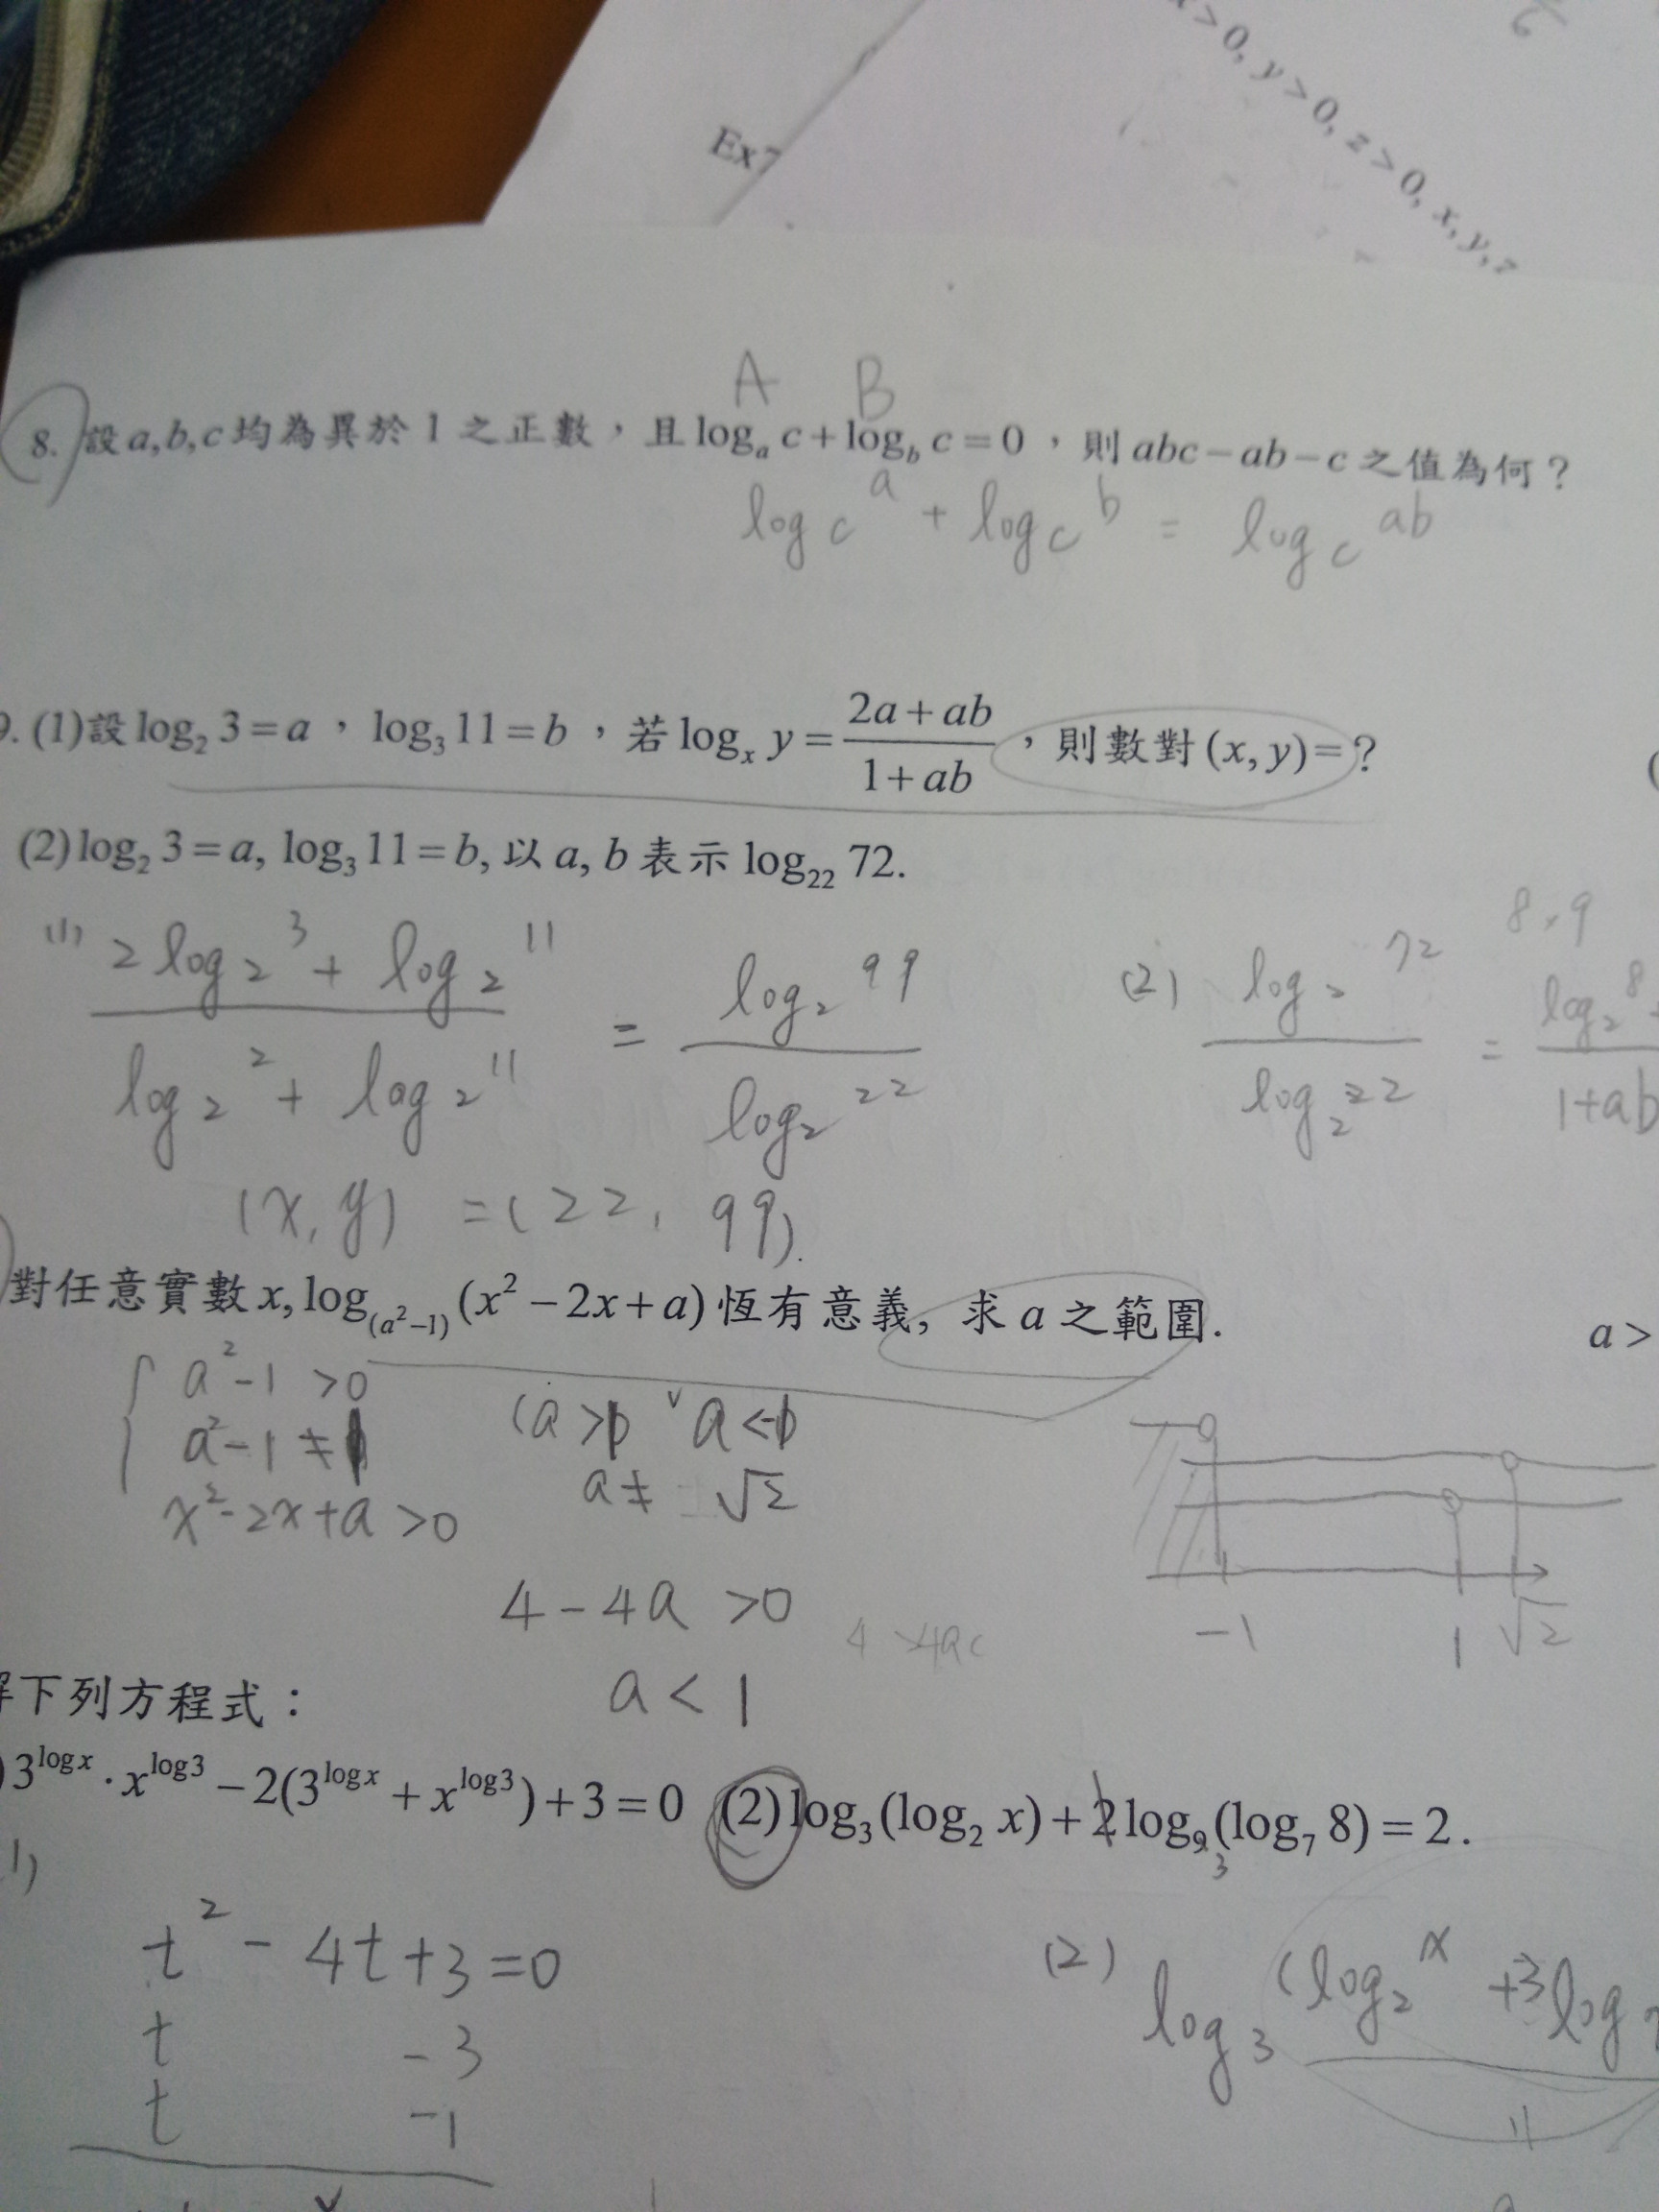 Ex7
x > 0, y > 0, z > 0, x, y, z
A B
8. 設 a, b, c 均為異於 1 之正數，且 logₐ c + log_b c = 0，則 abc − ab − c 之值為何？
log c^a + log c^b = log c^ab
9. (1)設 log₂ 3 = a，log₃ 11 = b，若 logₓ y = (2a + ab)/(1 + ab)，則數對 (x, y) = ?
(2) log₂ 3 = a, log₃ 11 = b, 以 a, b 表示 log₂₂ 72.
(1) (2 log₂ 3 + log₂ 11)/(log₂ 2 + log₂ 11) = (log₂ 99)/(log₂ 22)
8 × 9
(2) (log₂ 72)/(log₂ 22) = (log₂ 8 +)/(1+ab)
(x, y) = (22, 99).
對任意實數 x, log_(a²−1) (x² − 2x + a) 恆有意義, 求 a 之範圍.
a >
a² − 1 > 0
a² − 1 ≠ 1
x² − 2x + a > 0
a > 1 ∨ a < −1
a ≠ √2
4 − 4a > 0
a < 1
−1 1 √2
下列方程式：
) 3^(log x) · x^(log 3) − 2(3^(log x) + x^(log 3)) + 3 = 0 (2) log₃(log₂ x) + 2 log₉(log₇ 8) = 2.
3
1)
t² − 4t + 3 = 0
t −3
t −1
(2) log₃ (log₂ x + 3 log